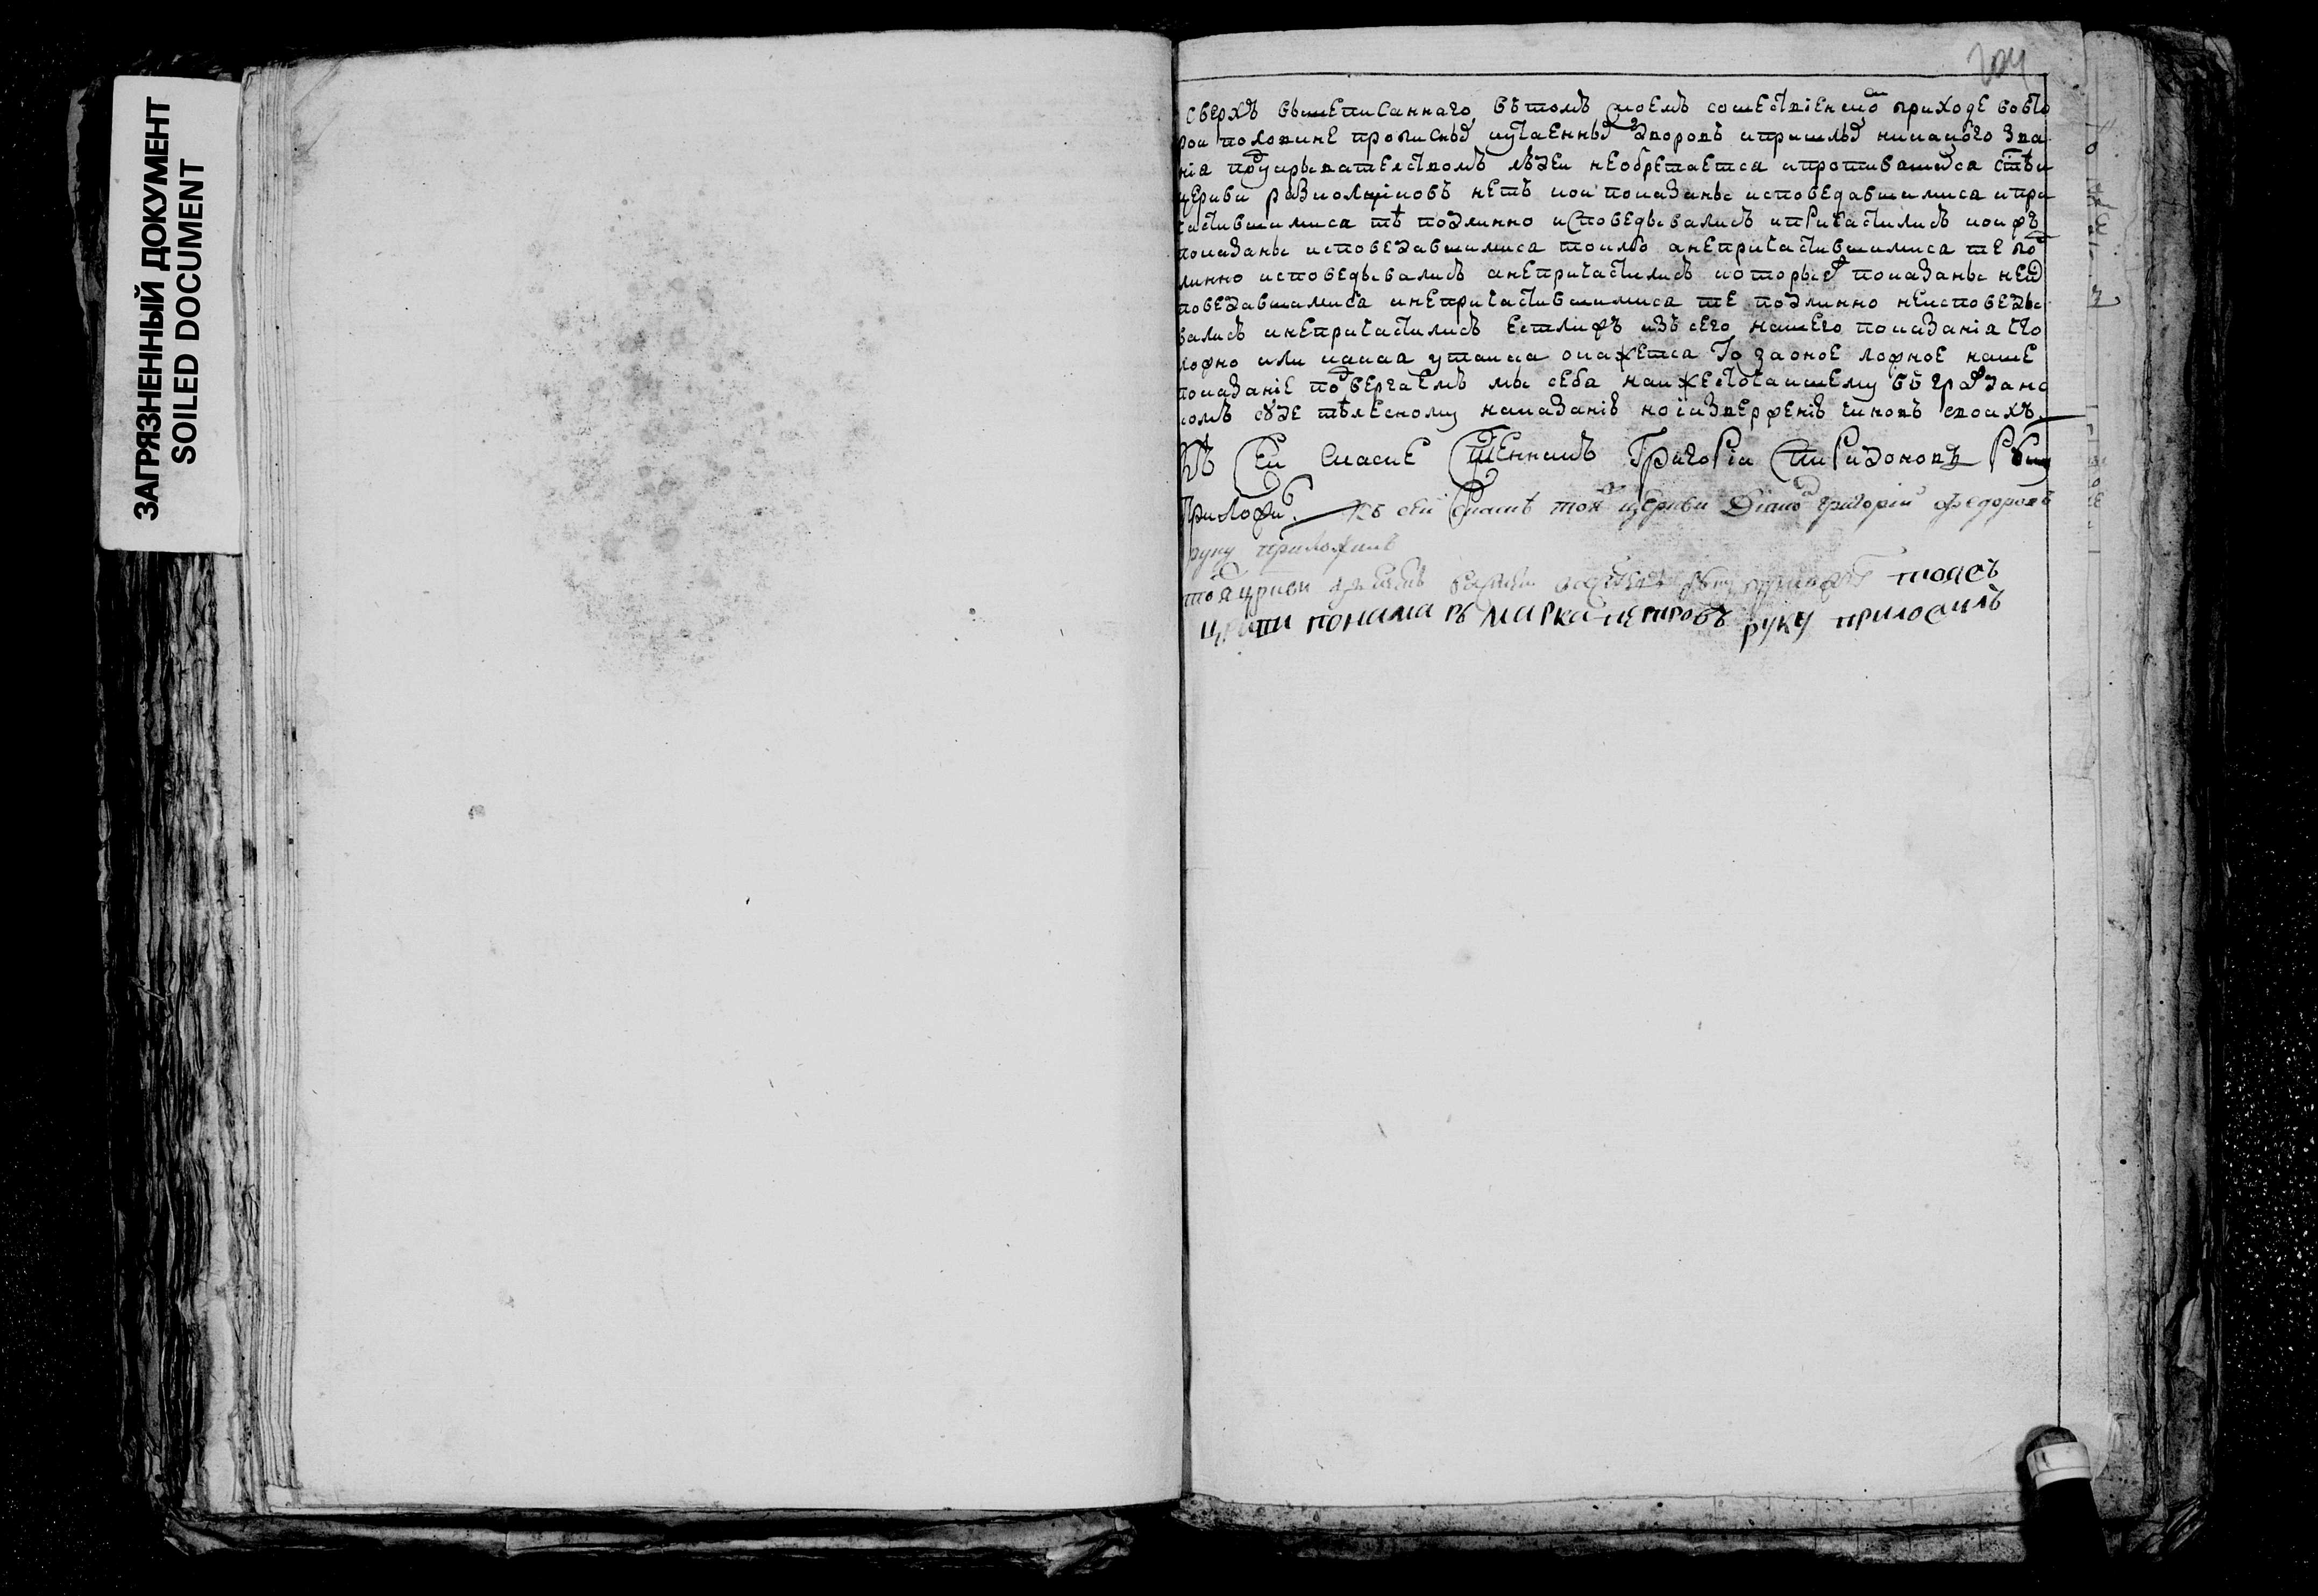 ЗАГРЯЗНЕННЫЙ ДОКУМЕНТ
SOILED DOCUMENT
204
Сверхъ вышеписаннаго въ томъ моемъ сошественско приходе вовто
рои половине прописны и утаенны дворовъ и пришлы никакого зва
нія под укрывателствомъ людеи необретается и противящися стеи
церкви расколщиковъ нетъ кои показаны исповедавшимися и при
частившимися тѣ подлинно исповедывались и причастились коиже
показаны исповедавшимися токмо а непричастившимися те под
линно исповедывались а непричастились которые показаны неис
поведавшимися и непричастившимися те подлинно неисповеды
вались и непричастились естлижъ изъ сего нашего показанія что
ложно или какая утаика окажется то за оное ложное наше
показаніе подвергаемъ мы себя наижесточаишему въ граждан
комъ суде тѣлесному наказанію ко изверженію чиновъ своихъ
Къ сеи скаске сщенникъ Григореи Спиридоновъ руку
приложи. Къ сеи скаскѣ тоя церкви діако Григорій Федоровъ
руку приложилъ
тоя цркви руку тояжъ
цркви понамарь Марка Петровъ руку приложилъ